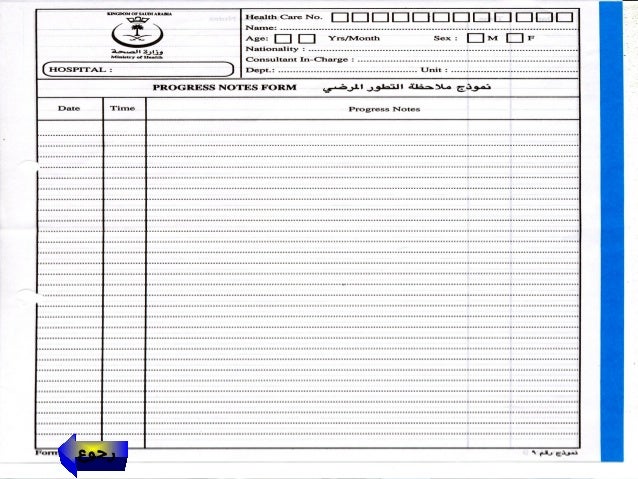 KINGDOM OF SAUDI ARABIA
وزارة الصحة
Ministry of Health
HOSPITAL :
Health Care No.
Name:
Age: Yrs/Month Sex : M F
Nationality :
Consultant In-Charge :
Dept.: Unit :
PROGRESS NOTES FORM نموذج ملاحظة التطور المرضي
Date Time Progress Notes
Form
رجوع
نموذج رقم ٩